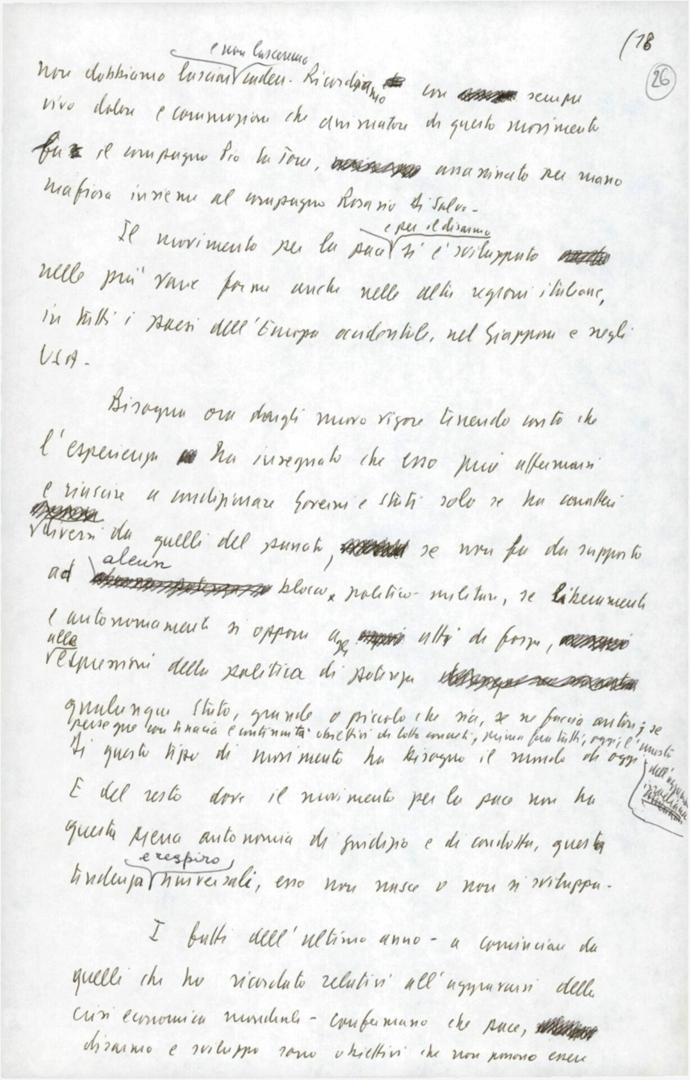 (18
26
e non lasceremo
non dobbiamo lasciar cadere. Ricordiamo con sempre
vivo dolore e commozione che animatore di questo movimento
fu il compagno Pio La Torre, assassinato per mano
mafiosa insieme al compagno Rosario Di Salvo.
e per il disarmo
Il movimento per la pace si è sviluppato
nelle più varie forme anche nelle altre regioni italiane,
in tutti i paesi dell'Europa occidentale, nel Giappone e negli
USA.
Bisogna ora dargli nuovo vigore tenendo conto che
l'esperienza ha insegnato che esso può affermarsi
e riuscire a condizionare Governi e Stati solo se ha caratteri
diversi da quelli del passato, se non fa da supporto
ad alcun blocco politico-militare, se liberamente
e autonomamente si oppone agli atti di forza,
alle
espressioni della politica di potenza
qualunque Stato, grande o piccolo che sia, se ne faccia autore; se
persegue con tenacia e continuità obiettivi di lotta concreti, primo fra tutti, oggi, l'arresto
dell'aggressione
israeliana
Di questo tipo di movimento ha bisogno il mondo di oggi
E del resto dove il movimento per la pace non ha
questa piena autonomia di giudizio e di condotta, questa
e respiro
tendenza universali, esso non nasce o non si sviluppa.
I fatti dell'ultimo anno - a cominciare da
quelli che ho ricordato relativi all'aggravarsi della
crisi economica mondiale - confermano che pace,
disarmo e sviluppo sono obiettivi che non possono essere